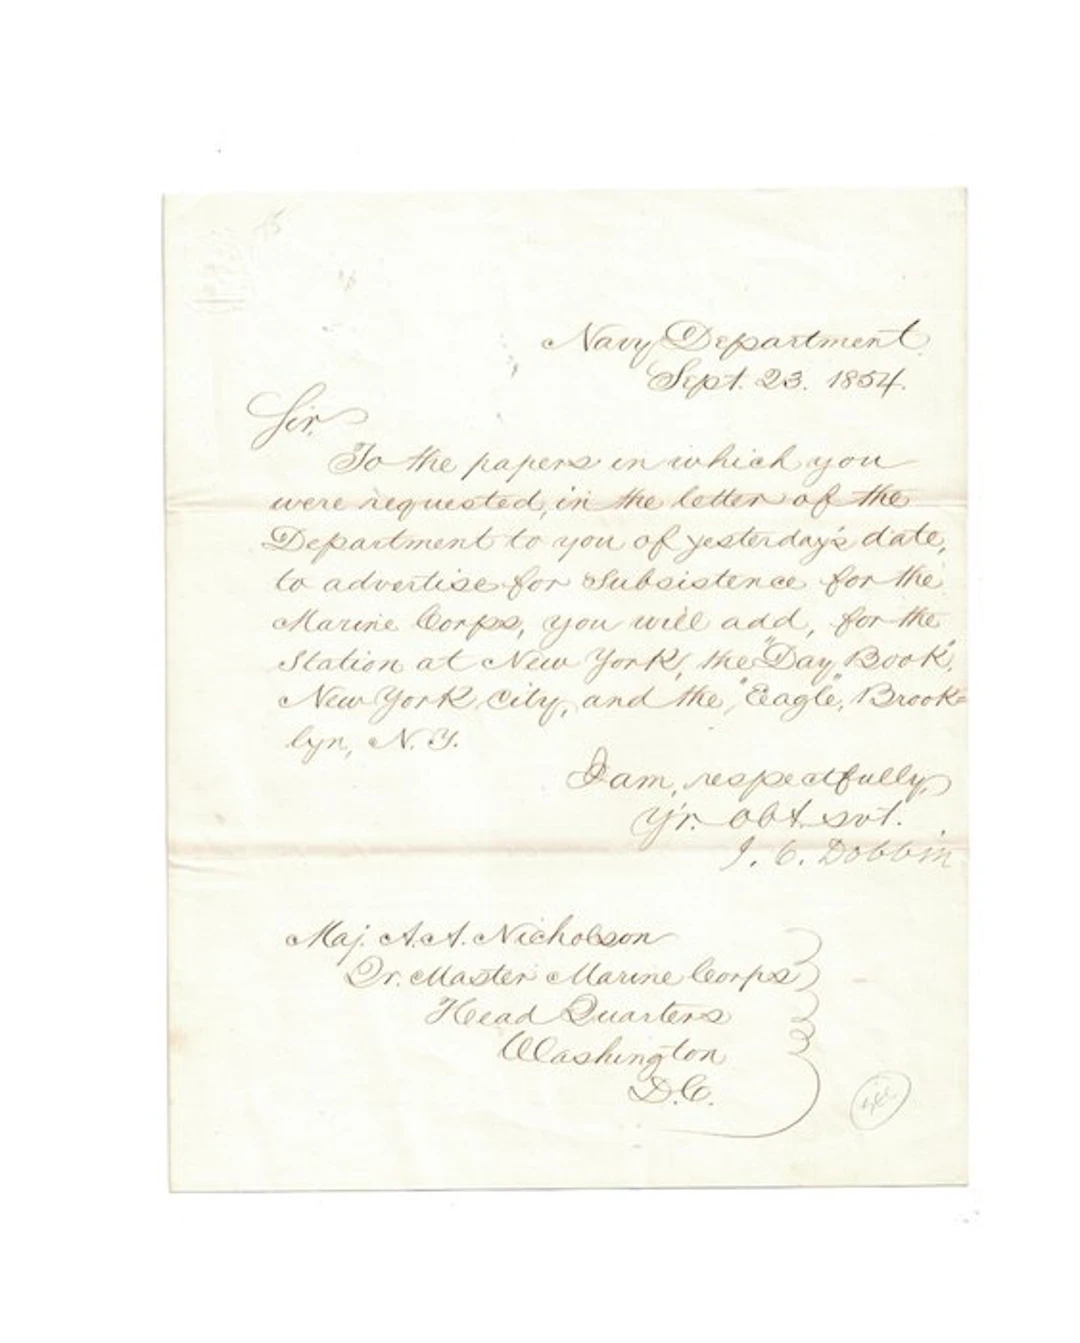 Navy Department
Sept. 23. 1854.
Sir,
To the papers in which you
were requested, in the letter of the
Department to you of yesterday's date,
to advertise for Subsistence for the
Marine Corps, you will add, for the
Station at New York, the "Day Book",
New York City, and the "Eagle", Brook=
lyn, N.Y.
I am, respectfully,
Yr. obt. svt.
J. C. Dobbin
Maj. A. A. Nicholson
Qr. Master Marine Corps
Head Quarters
Washington
D.C.